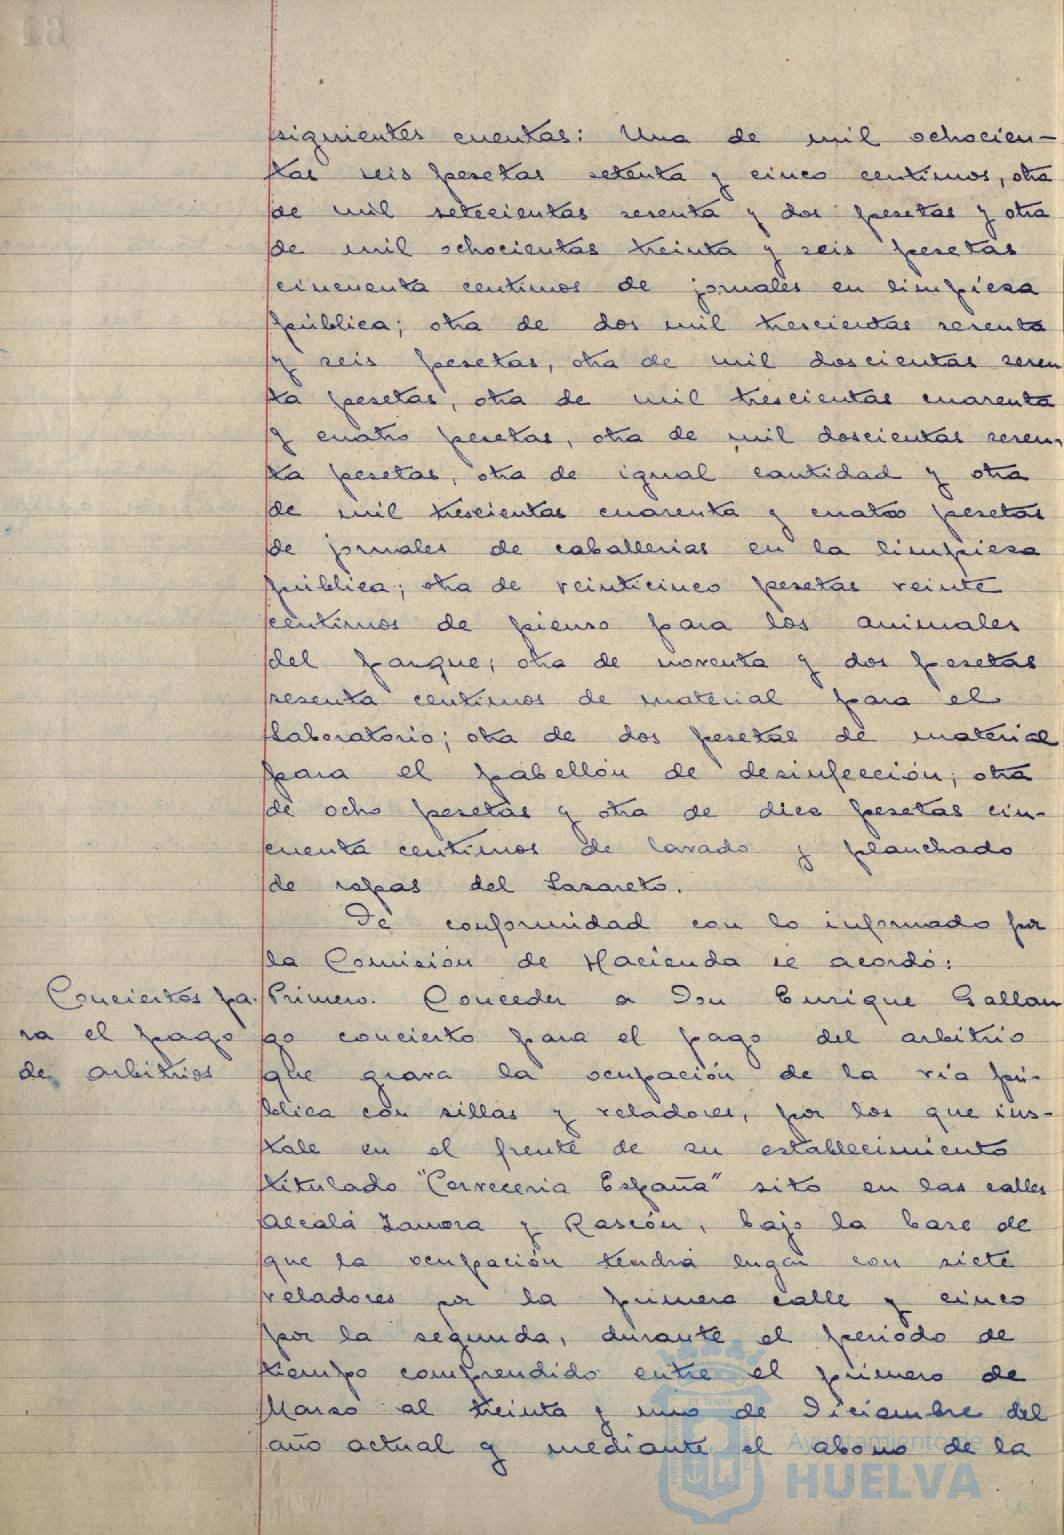 siguientes cuentas: Una de mil ochocien-
tas seis pesetas setenta y cinco centimos, otra
de mil setecientas sesenta y dos pesetas y otra
de mil ochocientas treinta y seis pesetas
cincuenta centimos de jornales en limpieza
pública; otra de dos mil trescientas sesenta
y seis pesetas, otra de mil doscientas sesen
ta pesetas, otra de mil trescientas cuarenta
y cuatro pesetas, otra de mil doscientas sesen-
ta pesetas, otra de igual cantidad y otra
de mil trescientas cuarenta y cuatro pesetas
de jornales de caballerias en la limpieza
pública; otra de veinticinco pesetas veinte
centimos de pienso para los animales
del parque; otra de noventa y dos pesetas
sesenta centimos de material para el
Laboratorio; otra de dos pesetas de material
para el pabellón de desinfección; otra
de ocho pesetas y otra de diez pesetas cin-
cuenta centimos de lavado y planchado
de ropas del Lazareto.
De conformidad con lo informado por
la Comisión de Hacienda se acordó:
Conciertos pa-
ra el pago
de arbitrios
Primero. Conceder a Don Enrique Gallan
go concierto para el pago del arbitrio
que grava la ocupación de la vía pú-
blica con sillas y veladores, por los que ins-
tale en el frente de su establecimiento
titulado "Cerveceria España" sito en las calles
Alcalá Zamora y Rascón, bajo la base de
que la ocupación tendrá lugar con siete
veladores por la primera calle y cinco
por la segunda, durante el periodo de
tiempo comprendido entre el primero de
Marzo al treinta y uno de Diciembre del
año actual y mediante el abono de la
Ayuntamiento de
HUELVA